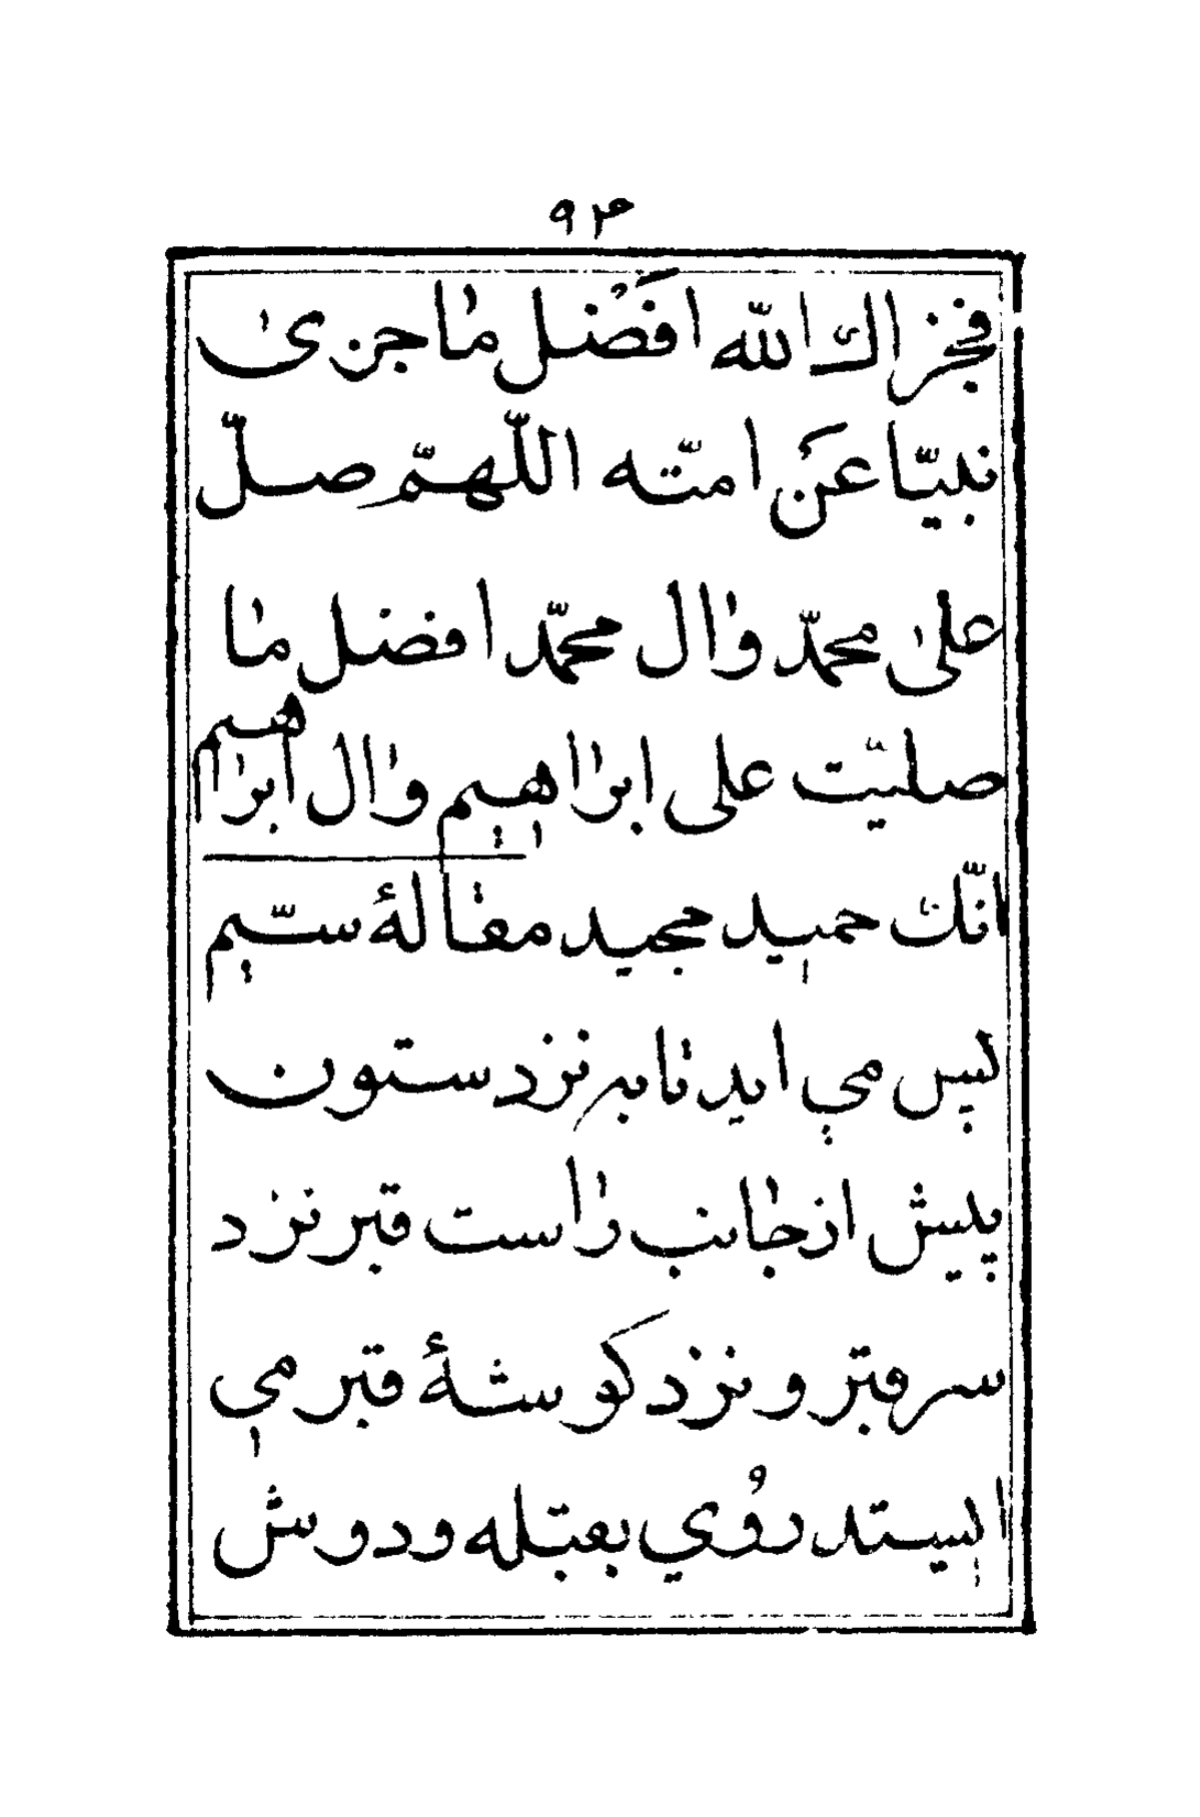 ۹۴
فجزاك الله افضل ما جزى
نبيّا عن امّته اللّهمّ صلّ
على محمّد وال محمّد افضل ما
صليّت على ابراهيم وال ابراهيم
انّك حميد مجيد مقالهٔ سيّم
پس مي ايد تا به نزد ستون
پيش از جانب راست قبر نزد
سر قبر و نزد كوشهٔ قبر مي
ايستد رُوي بقبله و دوش